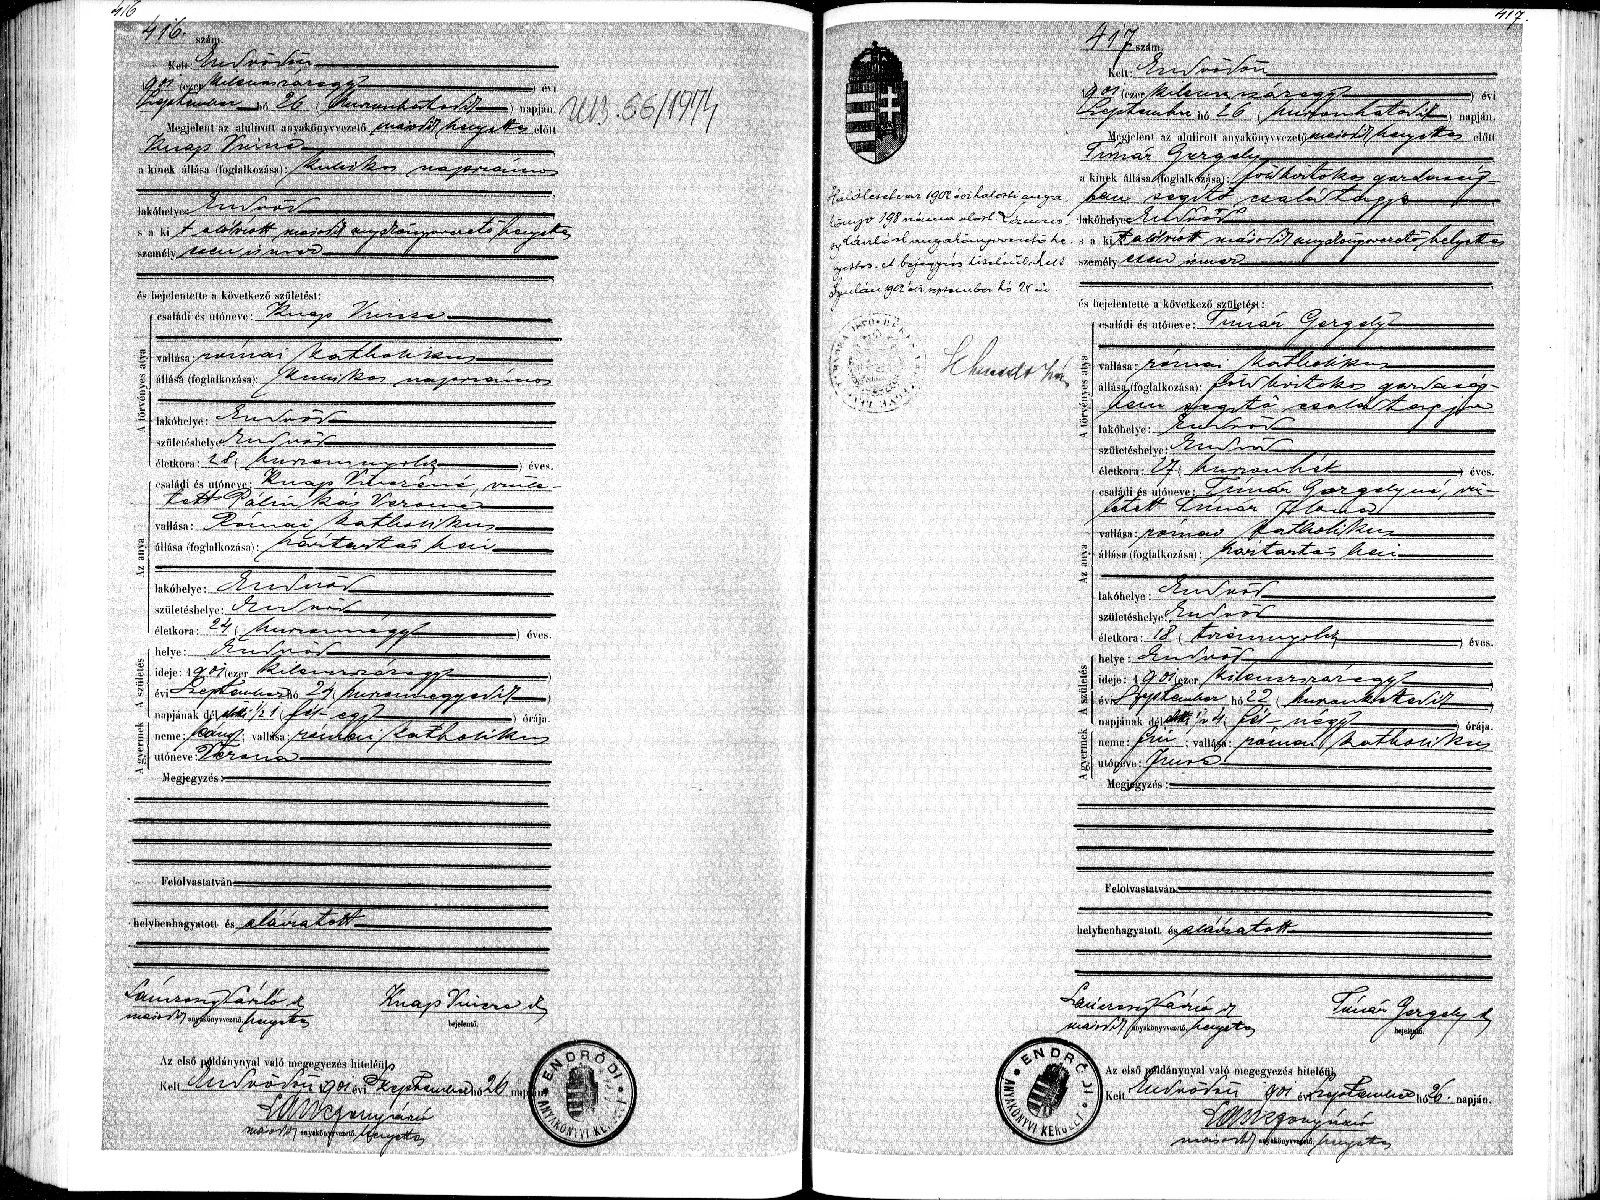 416
416. szám.
Kelt Endrődön
901 (ezer kilenczszázegy) évi
Szeptember hó 26 (huszonhatodik) napján.
Megjelent az alulirott anyakönyvvezető második helyettes előtt
Knap Vincze
a kinek állása (foglalkozása): kubikos napszámos
lakóhelye Endrőd
s a kit alólirott második anyakönyvvezető helyettes
személy esen ismer
és bejelentette a következő születést:
A törvényes atya
családi és utóneve: Knap Vincze
vallása: római katholikus
állása (foglalkozása): kubikos napszámos
lakóhelye: Endrőd
születéshelye: Endrőd
életkora: 28 (huszonnyolcz) éves.
Az anya
családi és utóneve: Knap Vinczéné, szüle-
tett Pálinkás Verona
vallása: Római katholikus
állása (foglalkozása): háztartásbeli
lakóhelye: Endrőd
születéshelye: Endrőd
életkora: 24 (huszonnégy) éves.
A születés
helye: Endrőd
ideje: 1901 (ezer kilenczszázegy)
évi Szeptember hó 24 (huszonnegyedik)
napjának dél előtti ½ 1 (fél-egy) órája.
A gyermek
neme: leány; vallása: római katholikus
utóneve: Verona
Megjegyzés:
Felolvastatván
helybenhagyatott és aláiratott
Knap Vincze
másodk anyakönyvvezető, helyettes
bejelentő.
Az első példánynyal való megegyezés hiteléül
Kelt Endrődön 1901 évi Szeptember hó 26 napján
másodk anyakönyvvezető, helyettes
ENDRŐDI ANYAKÖNYVI KERÜLET
56/1974
417.
417 szám.
Kelt: Endrődön
1901 (ezer kilenczszázegy) évi
Szeptember hó 26 (huszonhatodik) napján.
Megjelent az alulirott anyakönyvvezető második helyettes előtt
Timár Gergely
a kinek állása (foglalkozása): földbirtokos gazdaság-
ban segítő családtagja
lakóhelye Endrőd
s a kit alólirott második anyakönyvvezető helyettes
személy esen ismer
és bejelentette a következő születést:
A törvényes atya
családi és utóneve: Timár Gergely
vallása: római katholikus
állása (foglalkozása): földbirtokos gazdaság-
ban segítő családtagja
lakóhelye: Endrőd
születéshelye: Endrőd
életkora: 27 (huszonhét) éves.
Az anya
családi és utóneve: Timár Gergelyné, szü-
letett Timár Ilona
vallása: római katholikus
állása (foglalkozása): háztartásbeli
lakóhelye: Endrőd
születéshelye: Endrőd
életkora: 18 (tizennyolcz) éves.
A születés
helye: Endrőd
ideje: 1901 (ezer kilenczszázegy)
évi Szeptember hó 22 (huszonkettedik)
napjának dél előtti ½ 4 (fél-négy) órája.
A gyermek
neme: fiú; vallása: római katholikus
utóneve: Imre
Megjegyzés:
Felolvastatván
helybenhagyatott és aláiratott
Timár Gergely
második anyakönyvvezető, helyettes
bejelentő.
Az első példánynyal való megegyezés hiteléül
Kelt Endrődön 1901 évi Szeptember hó 26. napján.
másodk anyakönyvvezető, helyettes
ENDRŐDI ANYAKÖNYVI KERÜLET
1902 évi halotti anya
könyv 198 száma alatt
anyakönyvvezető he
lyettes. A bejegyzés hiteléül. Kelt
Gyulán 1902 évi szeptember hó 24 én